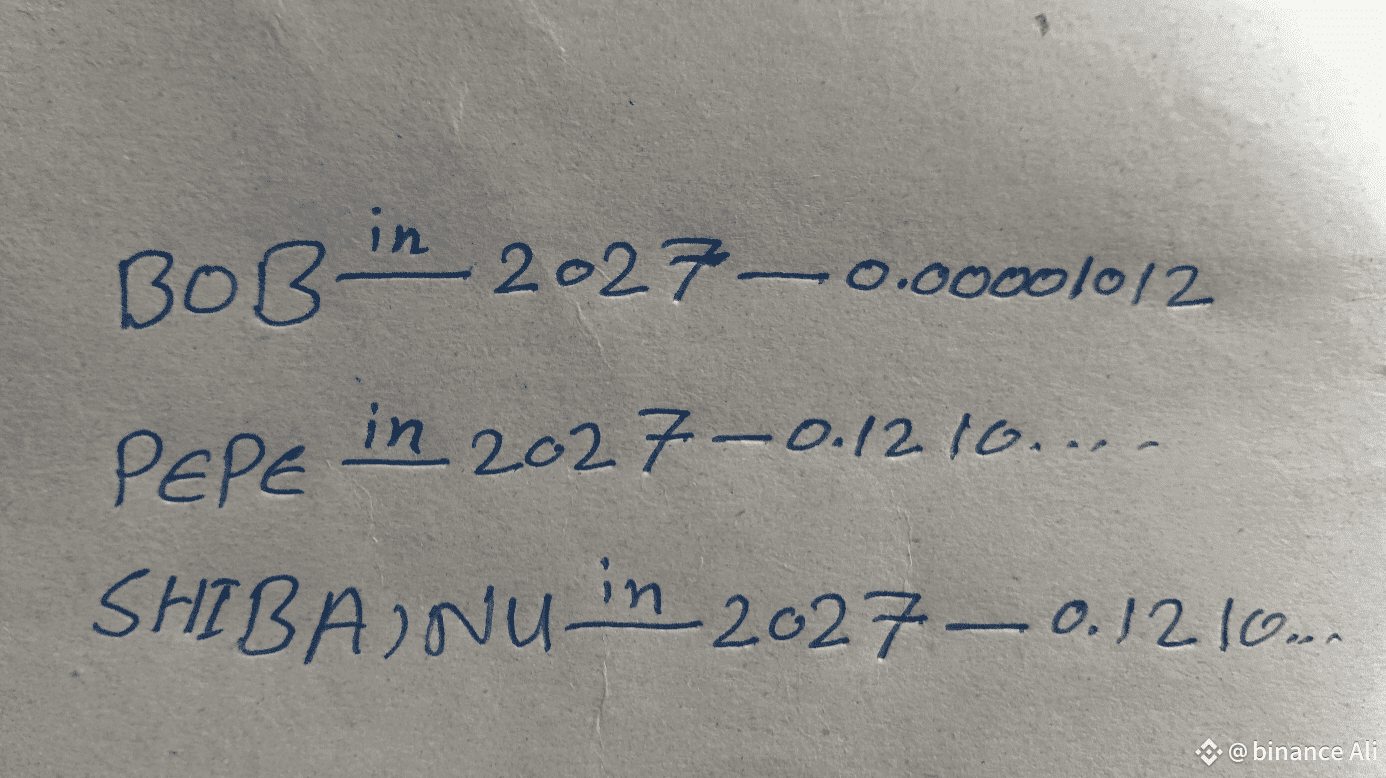 BOB in 2027 — 0.00001012
PEPE in 2027 — 0.1210....
SHIBA)NU in 2027 — 0.1210...
@binance Ali